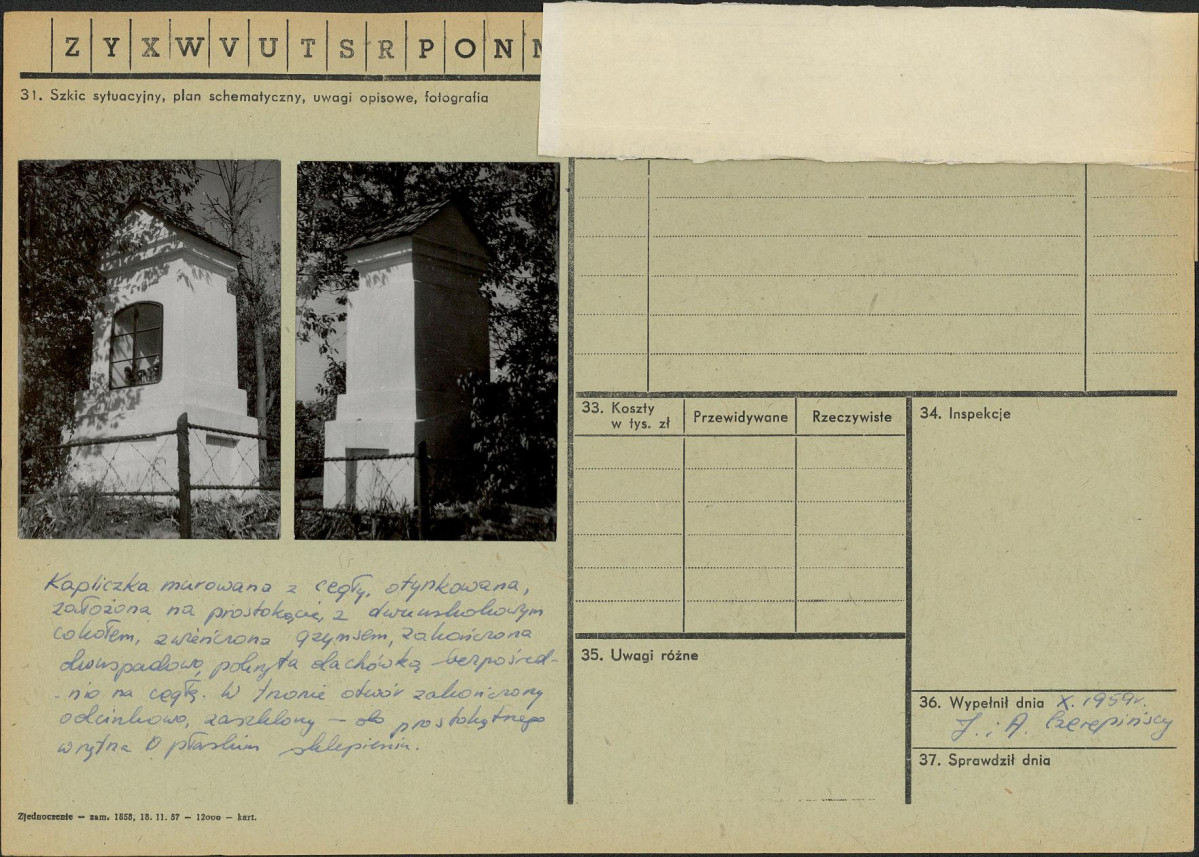 Z Y X W V U T S R P O N
31. Szkic sytuacyjny, plan schematyczny, uwagi opisowe, fotografia
Kapliczka murowana z cegły, otynkowana,
założona na prostokącie, z dwuuskokowym
cokołem, zwieńczona gzymsem, zakończona
dwuspadowo, pokryta dachówką bezpośred-
-nio na cegłę. W tronie otwór zakończony
odcinkowo, zaszklony — do prostokątnego
wnętrza o płaskim sklepieniu.
Zjednoczenie — zam. 1858, 18. 11. 57 — 12000 — kart.
33. Koszty
w tys. zł
Przewidywane
Rzeczywiste
34. Inspekcje
35. Uwagi różne
36. Wypełnił dnia X. 1959r.
J. i A. Czerepińscy
37. Sprawdził dnia